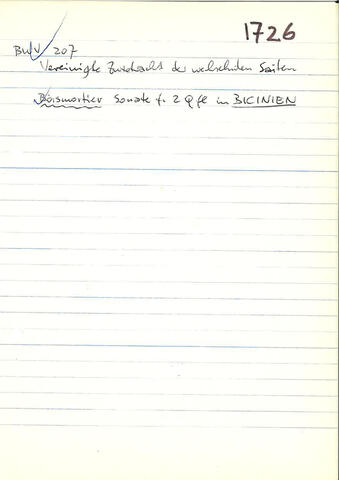 1726
BWV 207
Vereinigte Zwietracht der wechselnden Saiten
Boismortier Sonate f. 2 Qfl in BICINIEN